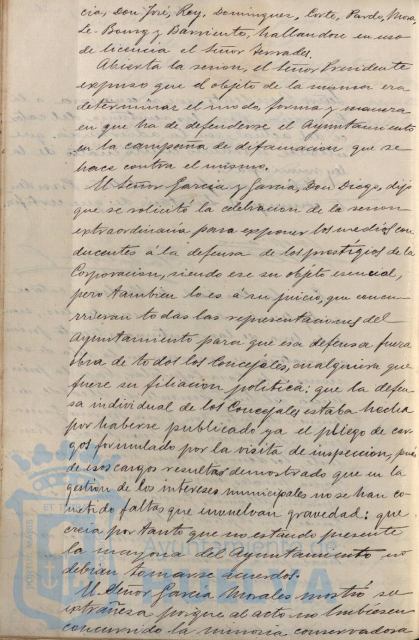 cia, Don José, Rey, Dominguez, Corte, Pardo, Mora,
Le-Bourg y Barriento, hallandose en uso
de licencia el Señor Terrades.
Abierta la sesion, el Señor Presidente
expuso que el objeto de la misma era
determinar el modo, forma y manera
en que ha de defenderse el Ayuntamiento
en la campaña de difamacion que se
hace contra el mismo.
El Señor Garcia y Garcia, Don Diego, dijo
que se solicitó la celebracion de la sesion
extraordinaria para exponer los medios con
ducentes á la defensa de los prestigios de la
Corporacion, siendo ese su objeto esencial,
pero tambien lo es á su juicio, que concu-
rrieran todas las representaciones del
Ayuntamiento para que esa defensa fuera
obra de todos los Concejales, cualquiera que
fuere su filiacion politica: que la defen
sa individual de los Concejales estaba hecha
por haberse publicado ya el pliego de car-
gos formulado por la visita de inspeccion, pues
de esos cargos resulta demostrado que en la
gestion de los intereses municipales no se han co
metido faltas que envuelvan gravedad: que
creia por tanto que no estando presente
la mayoria del Ayuntamiento no
debian tomarse acuerdos.
El Señor Garcia Morales mostró su
extrañeza porque al acto no hubiesen
concurrido la minoria conservadora